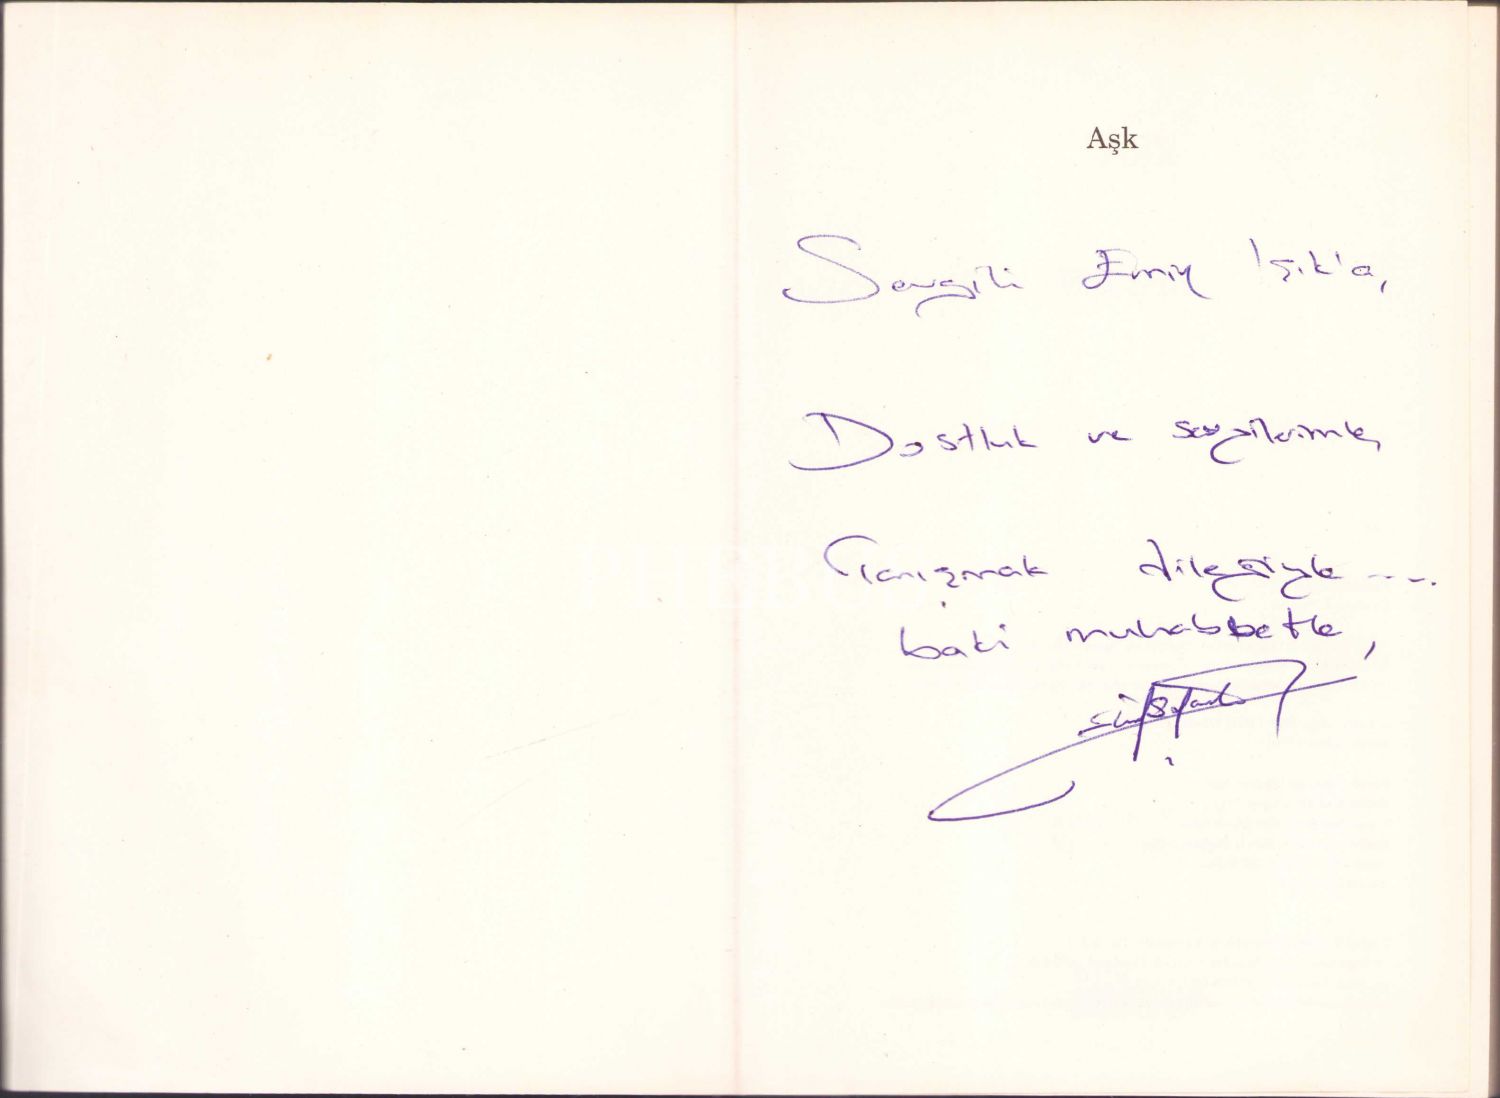 Aşk
Sevgili Emin Işık'a,
Dostluk ve sevgilerimle,
Tanışmak dileğiyle....
baki muhabbetle,